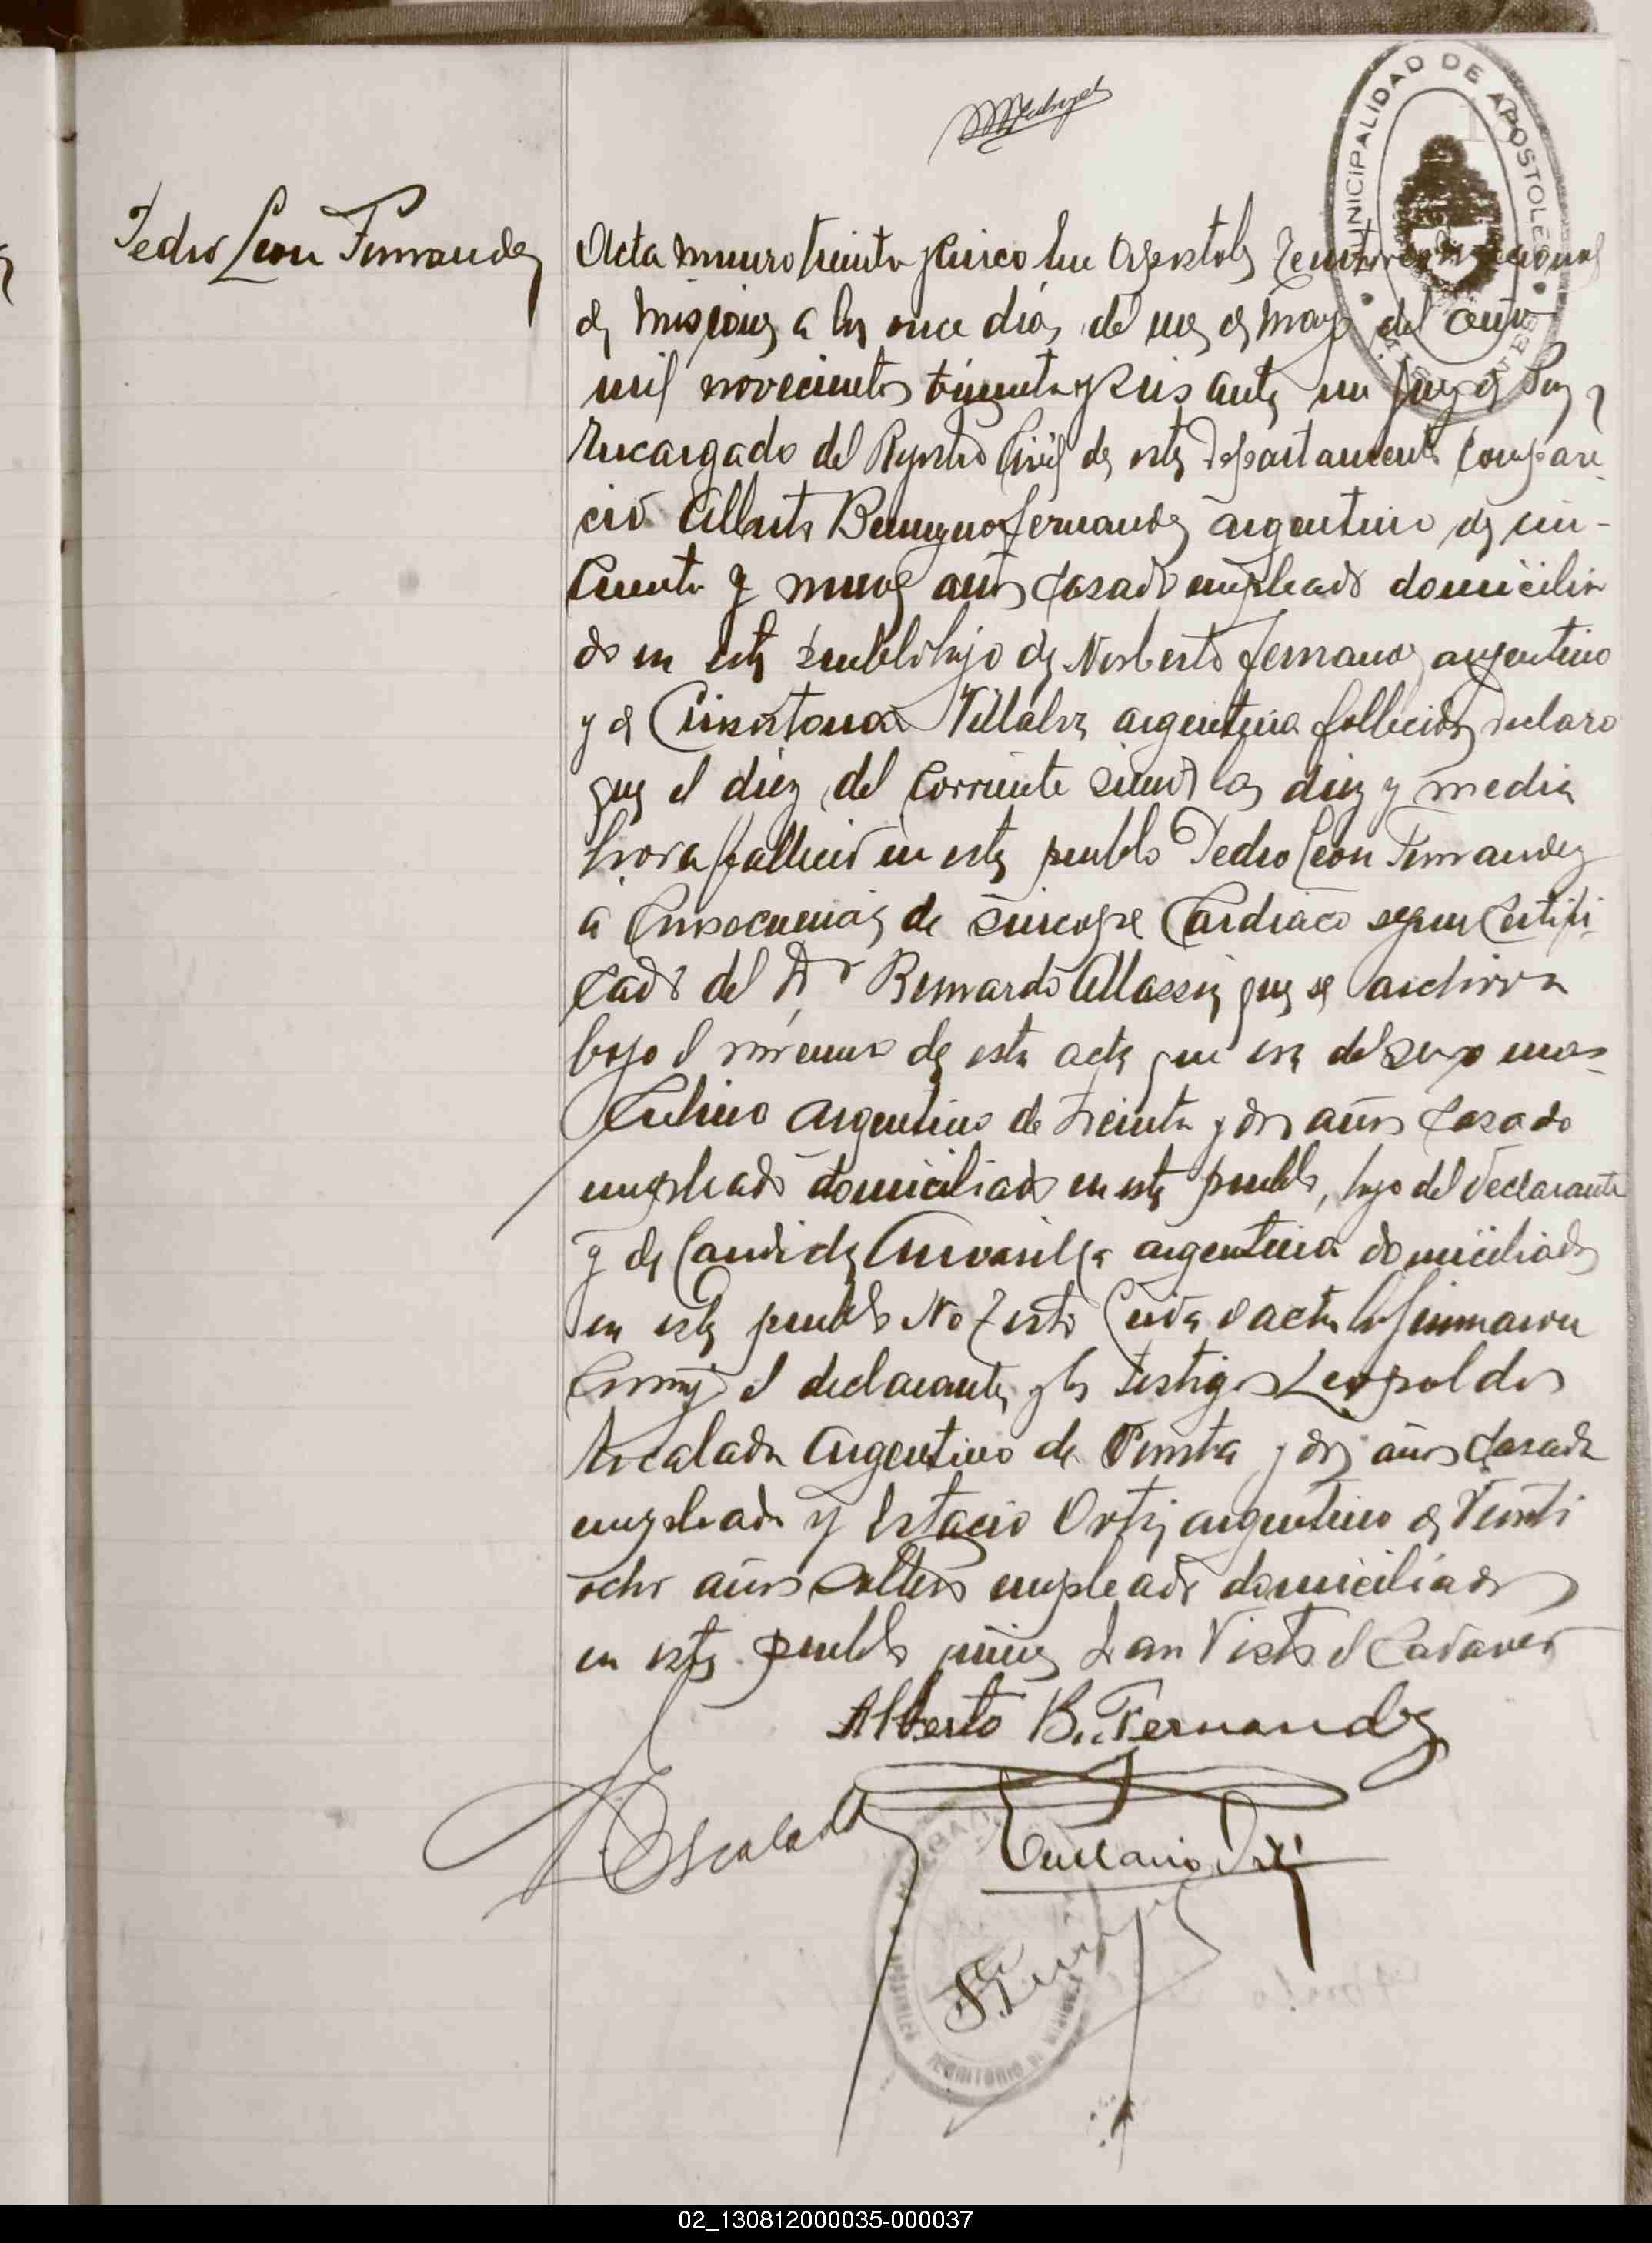 MUNICIPALIDAD DE APOSTOLES
MISIONES
Pedro Leon Fernandez
Acta numero treinta y cinco En Apostoles Territorio Nacional
de Misiones a los once dias del mes de mayo del año
mil novecientos treinta y seis ante mi Juez de Paz y
Encargado del Registro Civil de este Departamento compare
ció Alberto Benigno Fernandez argentino de cin-
cuenta y nueve años casado empleado domicilia
do en este pueblo hijo de Norberto Fernandez argentino
y de Villalva argentina fallecidos declaro
que el diez del corriente siendo las diez y media
hora fallecio en este pueblo Pedro Leon Fernandez
a consecuencias de sincope Cardiaco segun Certifi-
cado del Dr Bernardo que se archiva
bajo el número de esta acta que era del sexo mas-
culino argentino de treinta y dos años casado
empleado domiciliado en este pueblo, hijo del declarante
y de Candida argentina domiciliada
en este pueblo No Testó Leida el acta la firmaron
conmigo el declarante y los testigos Leopoldo
Escalada Argentino de treinta y dos años casado
empleado y Estacio Ortiz argentino de veinti
ocho años soltero empleado domiciliados
en este pueblo quienes han visto el Cadaver
Alberto B. Fernandez
L. Escalada
Ortiz
JUZGADO
APOSTOLES
TERRITORIO DE MISIONES
02_130812000035-000037